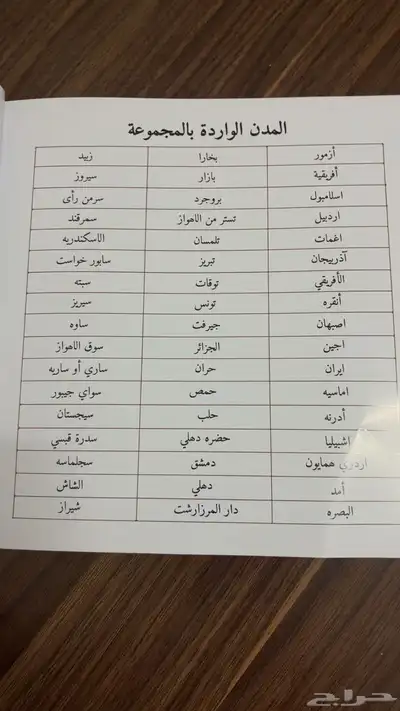 المدن الواردة بالمجموعة
أزمور بخارا زبيد
أفريقية بازار سيروز
اسلامبول بروجرد سرمن رأى
اردبيل تستر من الاهواز سمرقند
اغمات تلمسان الاسكندريه
آذربيجان تبريز سابور خواست
الأفريقي توقات سبته
أنقره تونس سيريز
اصبهان جيرفت ساوه
اجين الجزائر سوق الاهواز
ايران حران ساري أو ساريه
اماسيه حمص سواي جيبور
أدرنه حلب سيجستان
اشبيليا حضره دهلي سدرة قبسي
همايون دمشق سجلماسه
أمد دهلي الشاش
البصره دار المرزارشت شيراز
حراج